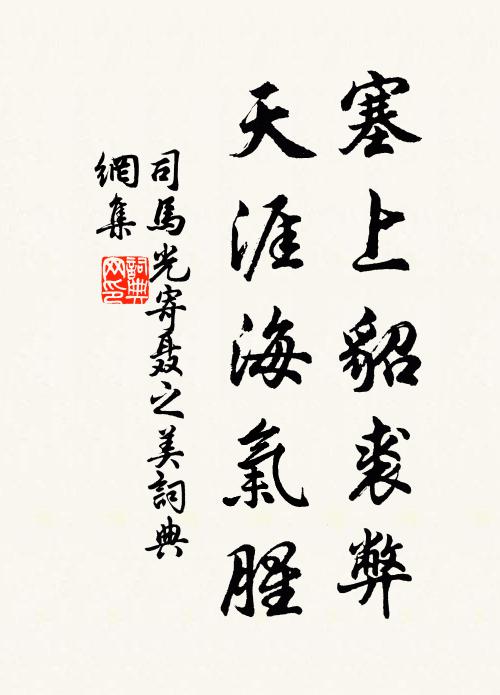 塞上貂裘弊
天涯海氣腥
司馬光寄聶之美詞典
網集
詞典網印